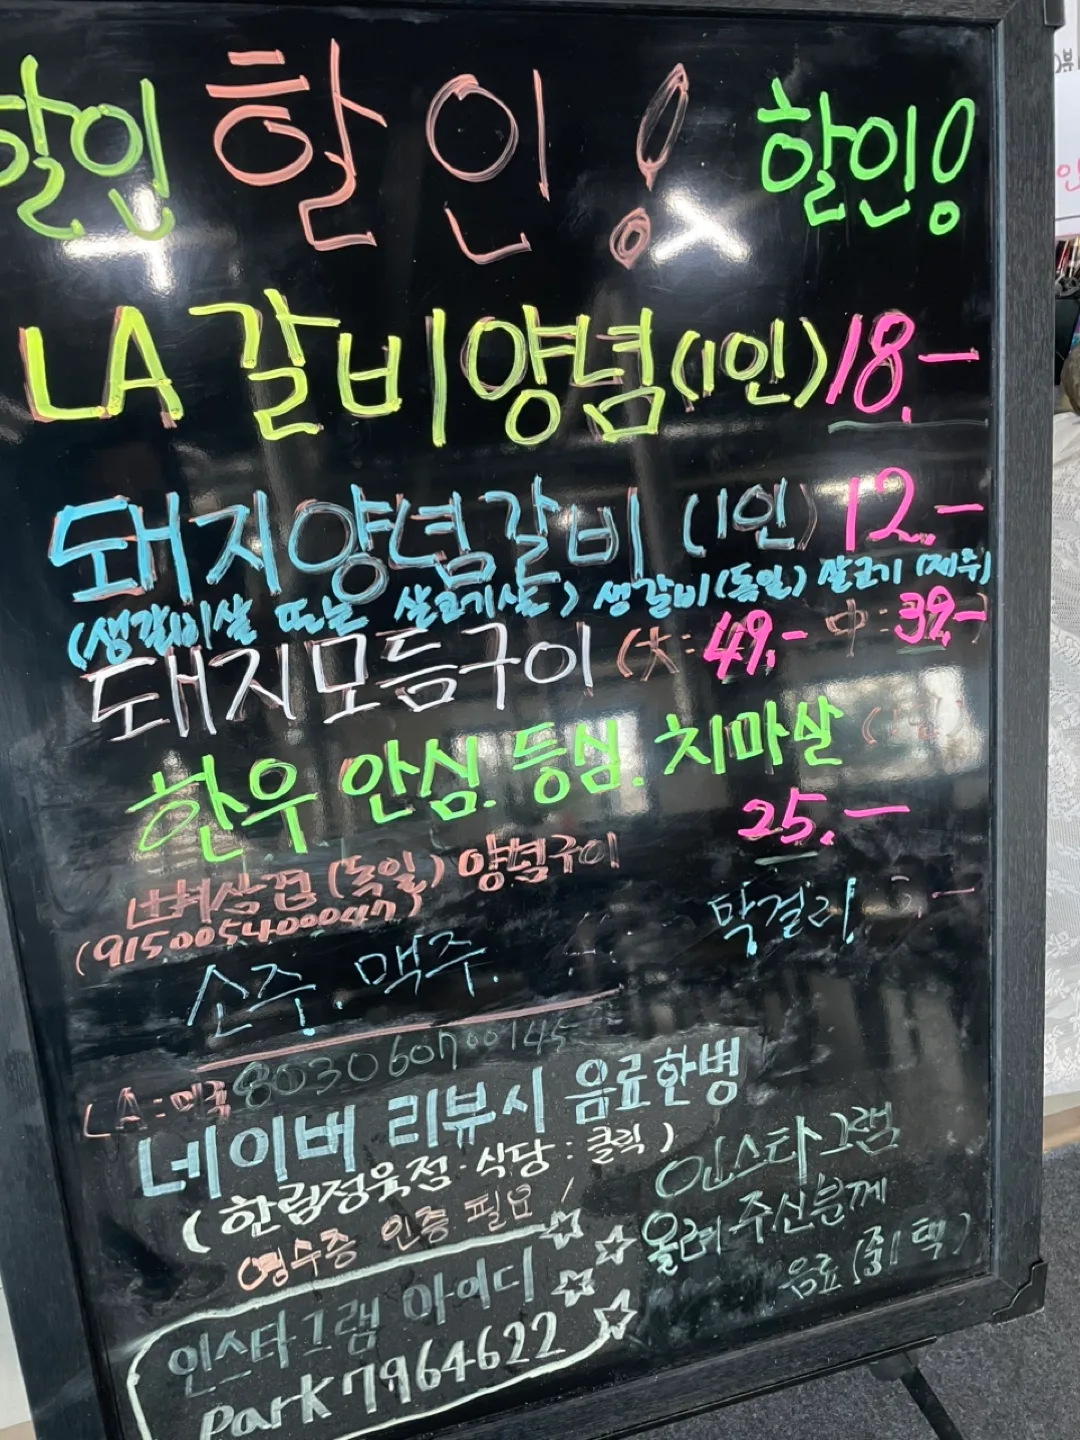 할인 할인! 할인!
LA갈비양념(1인) 18.-
돼지양념갈비 (1인) 12.-
(생갈비살 또는 살코기살) 생갈비(독일) 살코기(제주)
돼지모듬구이 (大: 49.- 中: 39.-)
한우 안심. 등심. 치마살
25.-
(독일) 양념구이
(915005400047)
소주. 맥주. 막걸리
LA:미국 803060700145
네이버 리뷰시 음료한병
(한림정육점·식당: 클릭)
영수증 인증 필요!
인스타그램
올려 주신분께
음료 (중1택)
인스타그램 아이디
park7964622